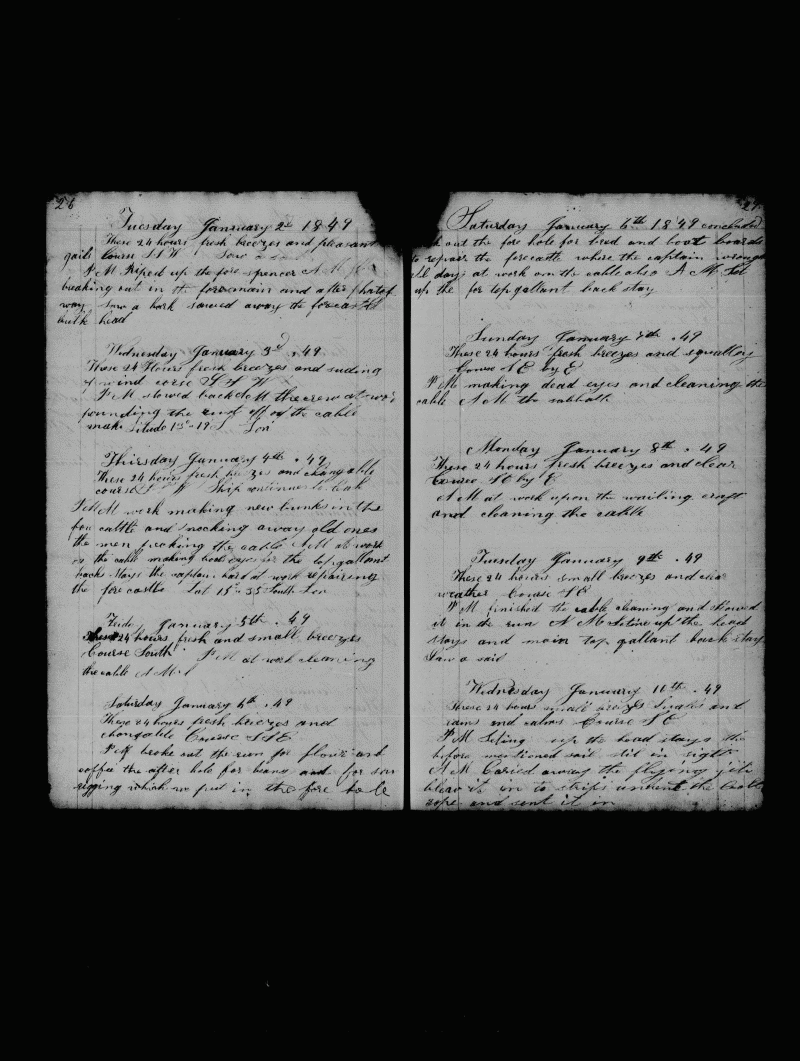 26
Tuesday January 2d 1849
These 24 hours fresh breezes and pleasant
gails Course S S W Saw a
P M Riped up the fore spencer A M
breaking out in the fore main and after
way Saw a bark sawed away the forecastle
bulk head
Wednesday January 3d . 49
These 24 Hours fresh breezes and
wind corse S S W
P M stowed back the crew at work
pounding the rust off of the cable
Thirsday January 4th . 49
These 24 hours fresh breezes and changable
course S S W Ship continues to leak
P M work making new bunks in the
fou castle and nocking away old ones
the men picking the cable A M at work
on the cable making eyes for the top gallant
backs stays the captain hard at work repairing
the fore castle Lat 15 - 35 South Lon
January 5th . 49
These 24 hours fresh and small breezes
Course South P M at work cleaning
the cable A M
Saturday January 6th . 49
These 24 hours fresh breezes and
changable Course S S E
P M broke out the run for flour and
coffee the after hole for beans and for
rigging which we put in the fore
27
Saturday January 6th 1849 concluded
out the fore hole for bred and boat boards
to repair the forecastle where the captain
all day at work on the cable also A M Set
up the for top gallant back stay
Sunday January 7th . 49
These 24 hours fresh breezes and squally
Course S E by E
P M making dead eyes and cleaning the
cable A M the sabbath
Monday January 8th . 49
These 24 hours fresh breezes and clear
Course S E by E
A M at work upon the wailing craft
and cleaning the cable
Tuesday January 9th . 49
These 24 hours small breezes and clear
weather Course S E
P M finished the cable cleaning and stowed
it in the run A M up the head
stays and main top gallant back stay
Saw a sail
Wednesday January 10th . 49
These 24 hours small breezes and
rains and calms Course S E
P M Seting up the head stays the
before mentioned sail stil in sight
A M Caried away the flying jib
blew it in to strips the bolt
rope and sent it in